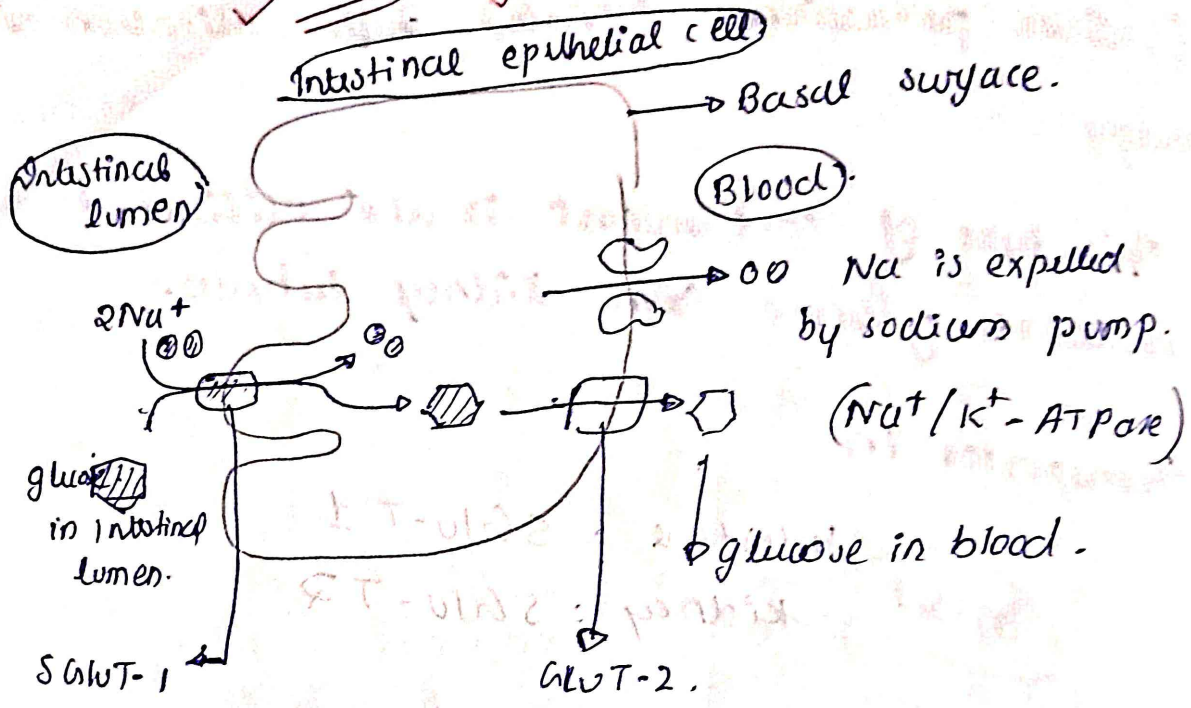 Intestinal epithelial cell
Basal surface.
Intestinal
lumen
Blood.
Na is expelled.
by sodium pump.
(Na+/K+- ATPase)
2Na+
glucose
in intestinal
lumen.
glucose in blood.
SGluT-1
GLUT-2.
Kidney : SGlu-T2
SGlu-T1